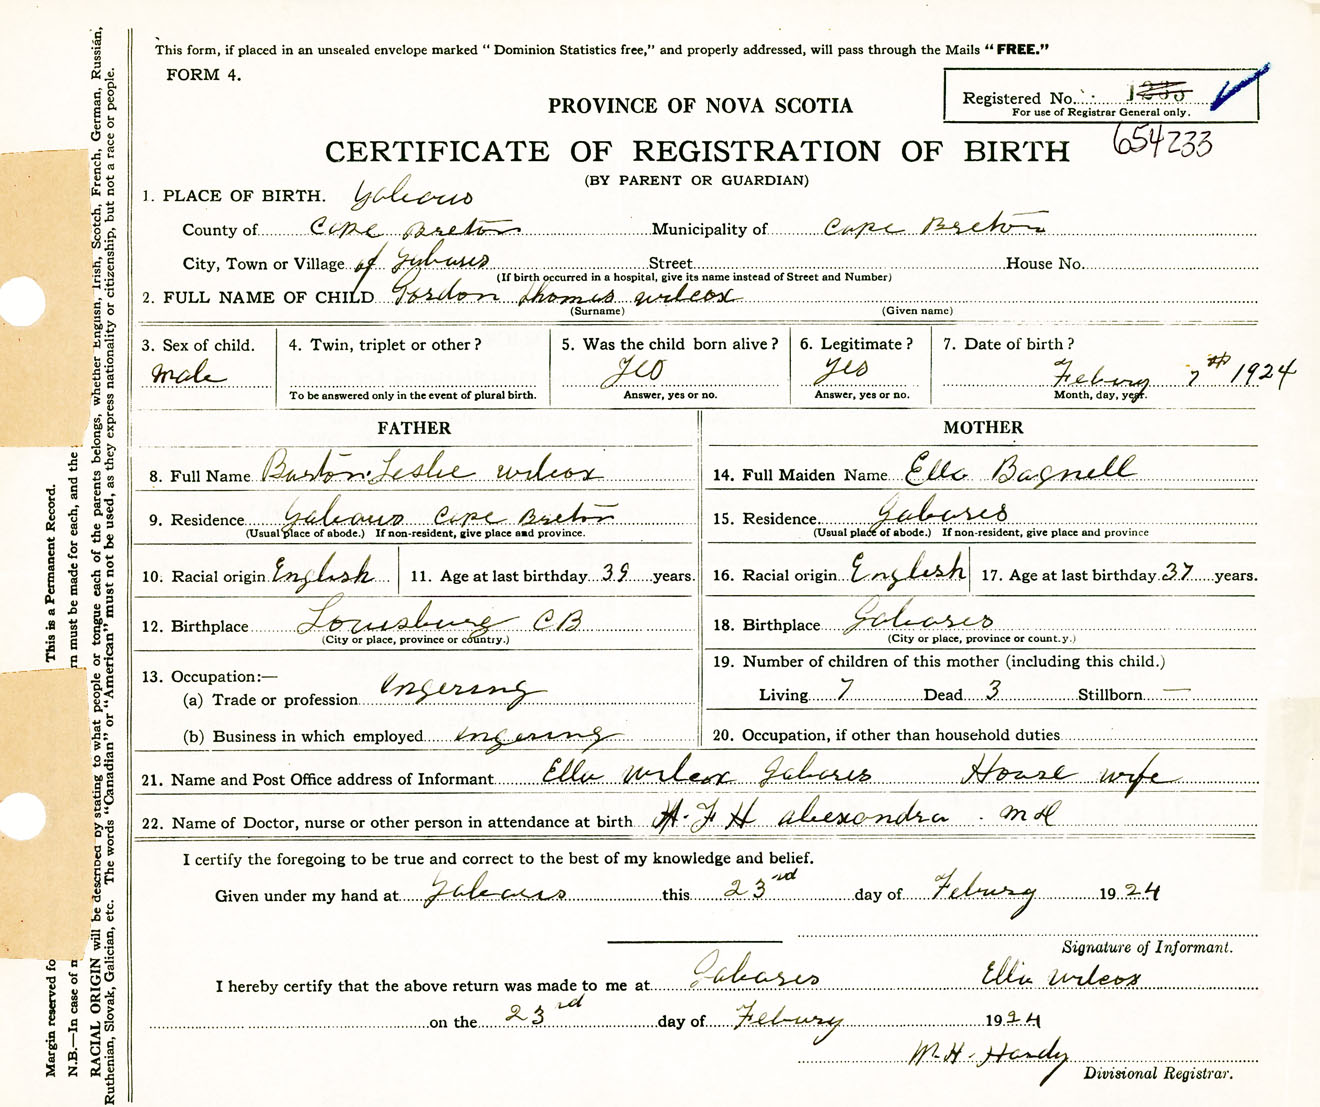 This form, if placed in an unsealed envelope marked "Dominion Statistics free," and properly addressed, will pass through the Mails "FREE."
FORM 4.
Registered No.
For use of Registrar General only.
654233
PROVINCE OF NOVA SCOTIA
CERTIFICATE OF REGISTRATION OF BIRTH
(BY PARENT OR GUARDIAN)
1. PLACE OF BIRTH. Gabarus
County of Cape Breton Municipality of Cape Breton
City, Town or Village of Gabarus Street House No.
(If birth occurred in a hospital, give its name instead of Street and Number)
2. FULL NAME OF CHILD Gordon Thomas Wilcox
(Surname) (Given name)
3. Sex of child. 4. Twin, triplet or other? 5. Was the child born alive? 6. Legitimate? 7. Date of birth?
Male Yes Yes Febury 7th 1924
To be answered only in the event of plural birth. Answer, yes or no. Answer, yes or no. Month, day, year.
FATHER MOTHER
8. Full Name Burton Leslie Wilcox 14. Full Maiden Name Ella Bagnell
9. Residence Gabarus Cape Breton 15. Residence Gabares
(Usual place of abode.) If non-resident, give place and province. (Usual place of abode.) If non-resident, give place and province
10. Racial origin English 11. Age at last birthday 39 years. 16. Racial origin English 17. Age at last birthday 37 years.
12. Birthplace Louisburg CB 18. Birthplace Gabares
(City or place, province or country.) (City or place, province or county.)
19. Number of children of this mother (including this child.)
13. Occupation:—
(a) Trade or profession Ingering Living 7 Dead 3 Stillborn —
(b) Business in which employed Ingering 20. Occupation, if other than household duties
21. Name and Post Office address of Informant Ella Wilcox Gabares House wife
22. Name of Doctor, nurse or other person in attendance at birth H. F H Alexandra. MD
I certify the foregoing to be true and correct to the best of my knowledge and belief.
Given under my hand at Gabarus this 23rd day of Febury 1924
Signature of Informant.
I hereby certify that the above return was made to me at Gabares Ella Wilcox
on the 23rd day of Febury 1924
M. H. Hardy
Divisional Registrar.
Margin reserved fo This is a Permanent Record.
N.B.—In case of m rn must be made for each, and the
RACIAL ORIGIN will be described by stating to what people or tongue each of the parents belongs, whether English, Irish, Scotch, French, German, Russian,
Ruthenian, Slovak, Galician, etc. The words "Canadian" or "American" must not be used, as they express nationality or citizenship, but not a race or people.